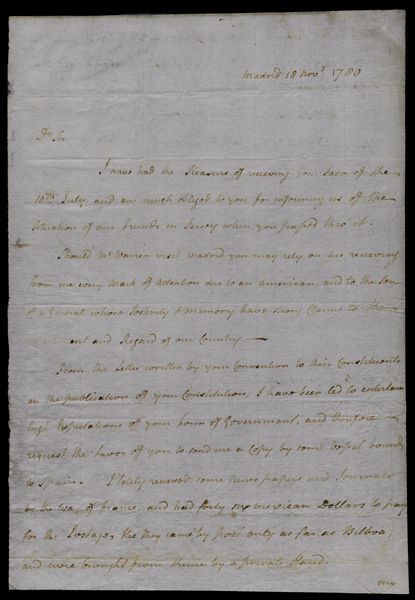 Madrid 18 Nov.r 1780
Dr Sir
I have had the Pleasure of receiving your favor of the
10th July, and am much obliged to you for informing us of the
Situation of our friends in Jersey when you passed thro' it.
Should Mr Warren visit Madrid you may rely on his receiving
from me every mark of attention due to an american, and to the son
of a General whose Integrity & memory have strong Claims to the
and Regard of our Country —
From the Letter written by your Convention to their Constituents
on the publication of your Constitution, I have been led to entertain
high Expectations of your form of Government, and therefore
request the favor of you to send me a Copy by some vessel bound
to Spain. I lately received some news papers and Journals
by the way of France, and had forty six mexican Dollars to pay
for the Postage, tho they came by post only as far as Bilboa,
and were brought from thence by a private Hand.
my